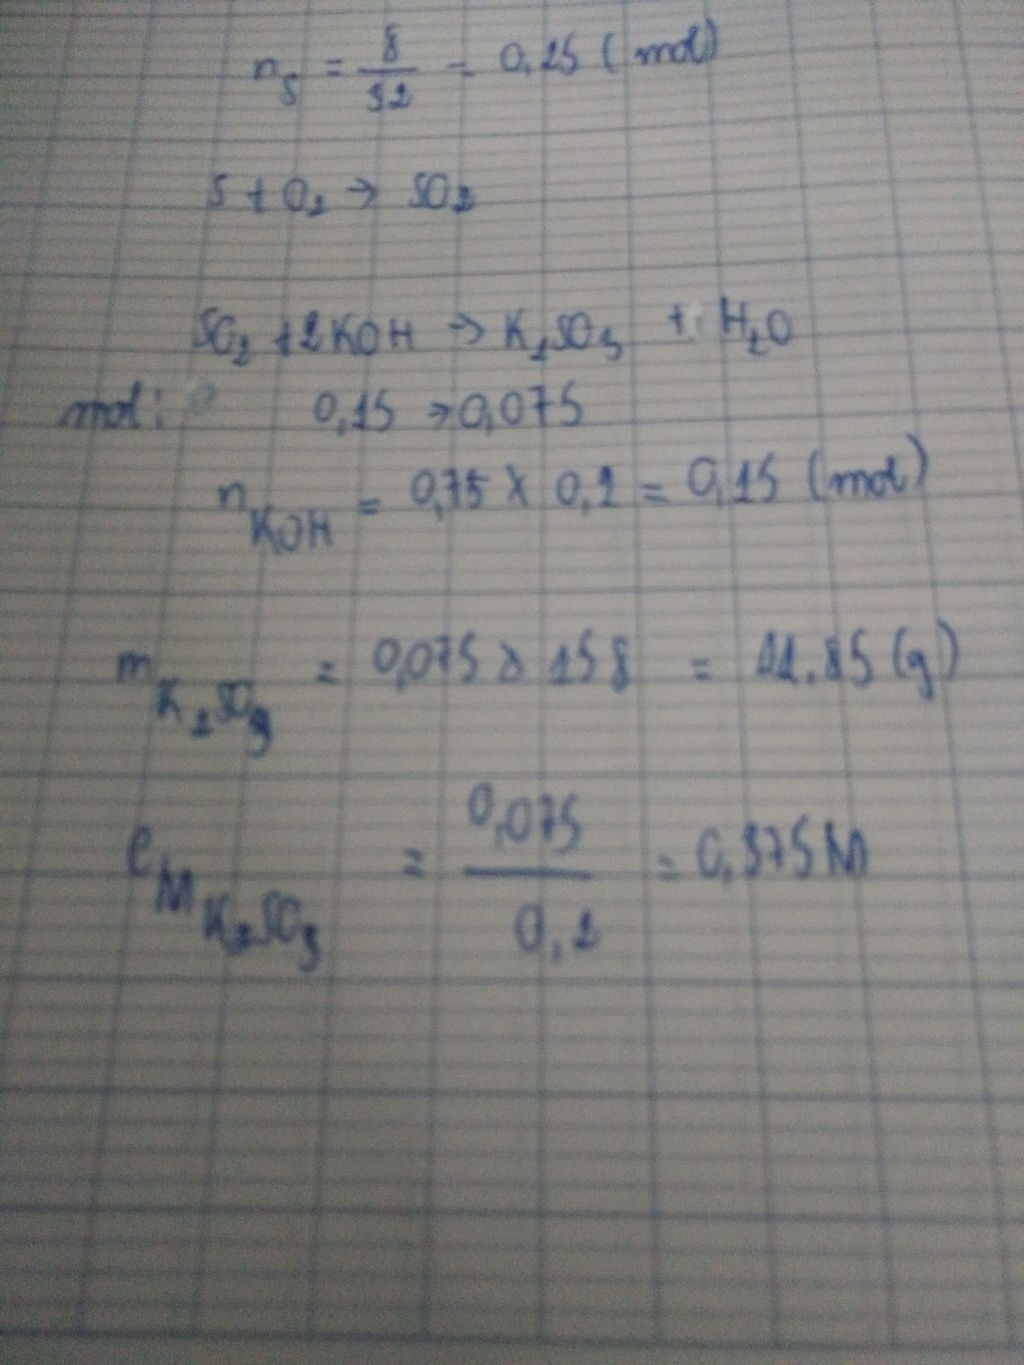 n_S = 8/32 = 0,25 (mol)
S + O₂ → SO₂
SO₂ + 2KOH → K₂SO₃ + H₂O
mol: 0,15 → 0,075
n_KOH = 0,75 × 0,2 = 0,15 (mol)
m_K₂SO₃ = 0,075 × 158 = 11.85 (g)
C_M K₂SO₃ = 0,075/0,2 = 0,375M